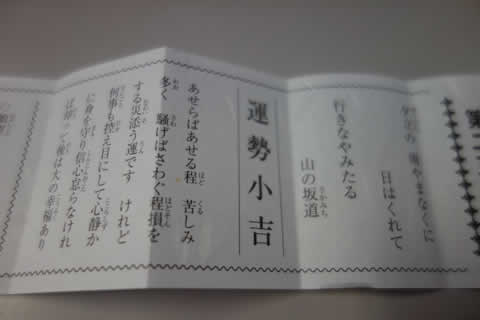 第
雨やまなくに
日はくれて
行きなやみたる
山の坂道
運勢小吉
あせらばあせる程 苦しみ
多く 騒げばさわぐ程損を
する災添う運です けれど
何事も控え目にして心静か
に身を守り信心怠らなけれ
ば却って後は大の幸福あり